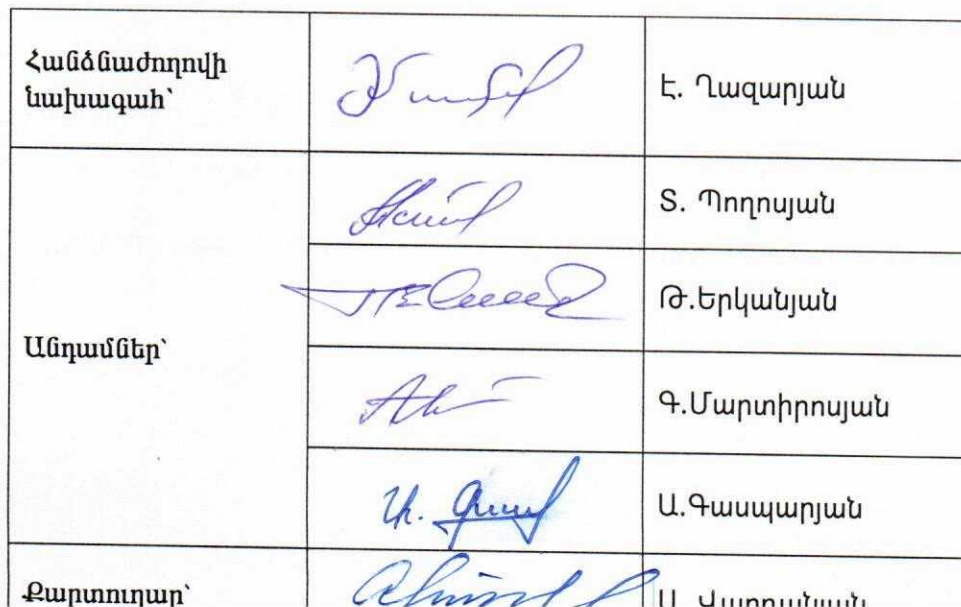 Հանձնաժողովի
նախագահ՝
Է. Ղազարյան
Տ. Պողոսյան
Թ.Երկանյան
Անդամներ՝
Գ.Մարտիրոսյան
Ա.Գասպարյան
Քարտուղար՝
Ա. Վարդանյան